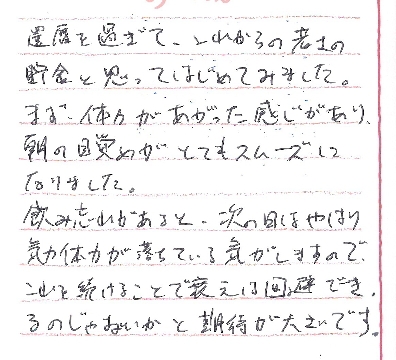 還暦を過ぎて、これからの老士の
貯金と思ってはじめてみました。
まず、体力があがった感じがあり、
朝の目覚めがとてもスムーズに
なりました。
飲み忘れがあると、次の日はやはり
気力体力が落ちている気がしますので、
これを続けることで衰えは回避でき
るのじゃないかと期待が大きいです。